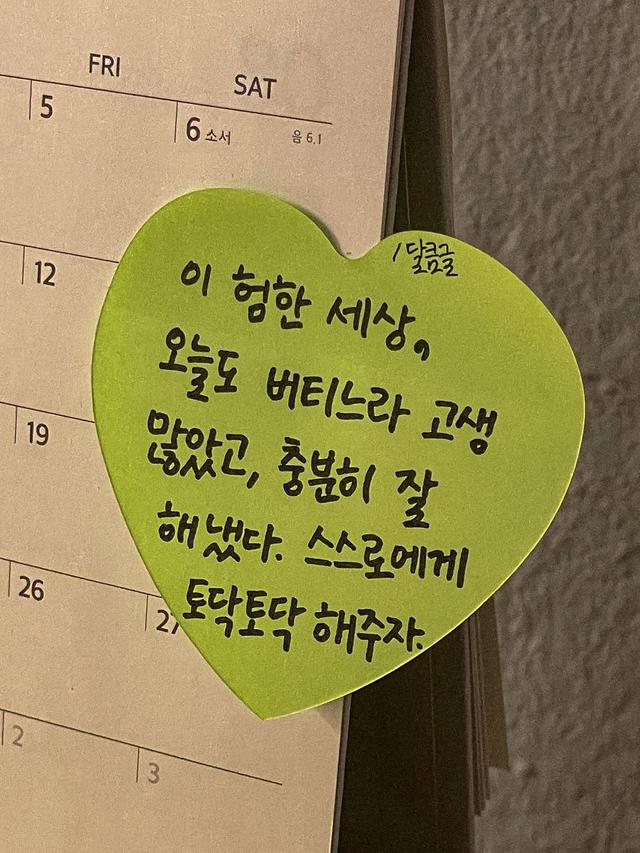 FRI
SAT
5
6 소서 음 6.1
12
19
26
27
2
3
/달콤글
이 험한 세상,
오늘도 버티느라 고생
많았고, 충분히 잘
해냈다. 스스로에게
토닥토닥 해주자.